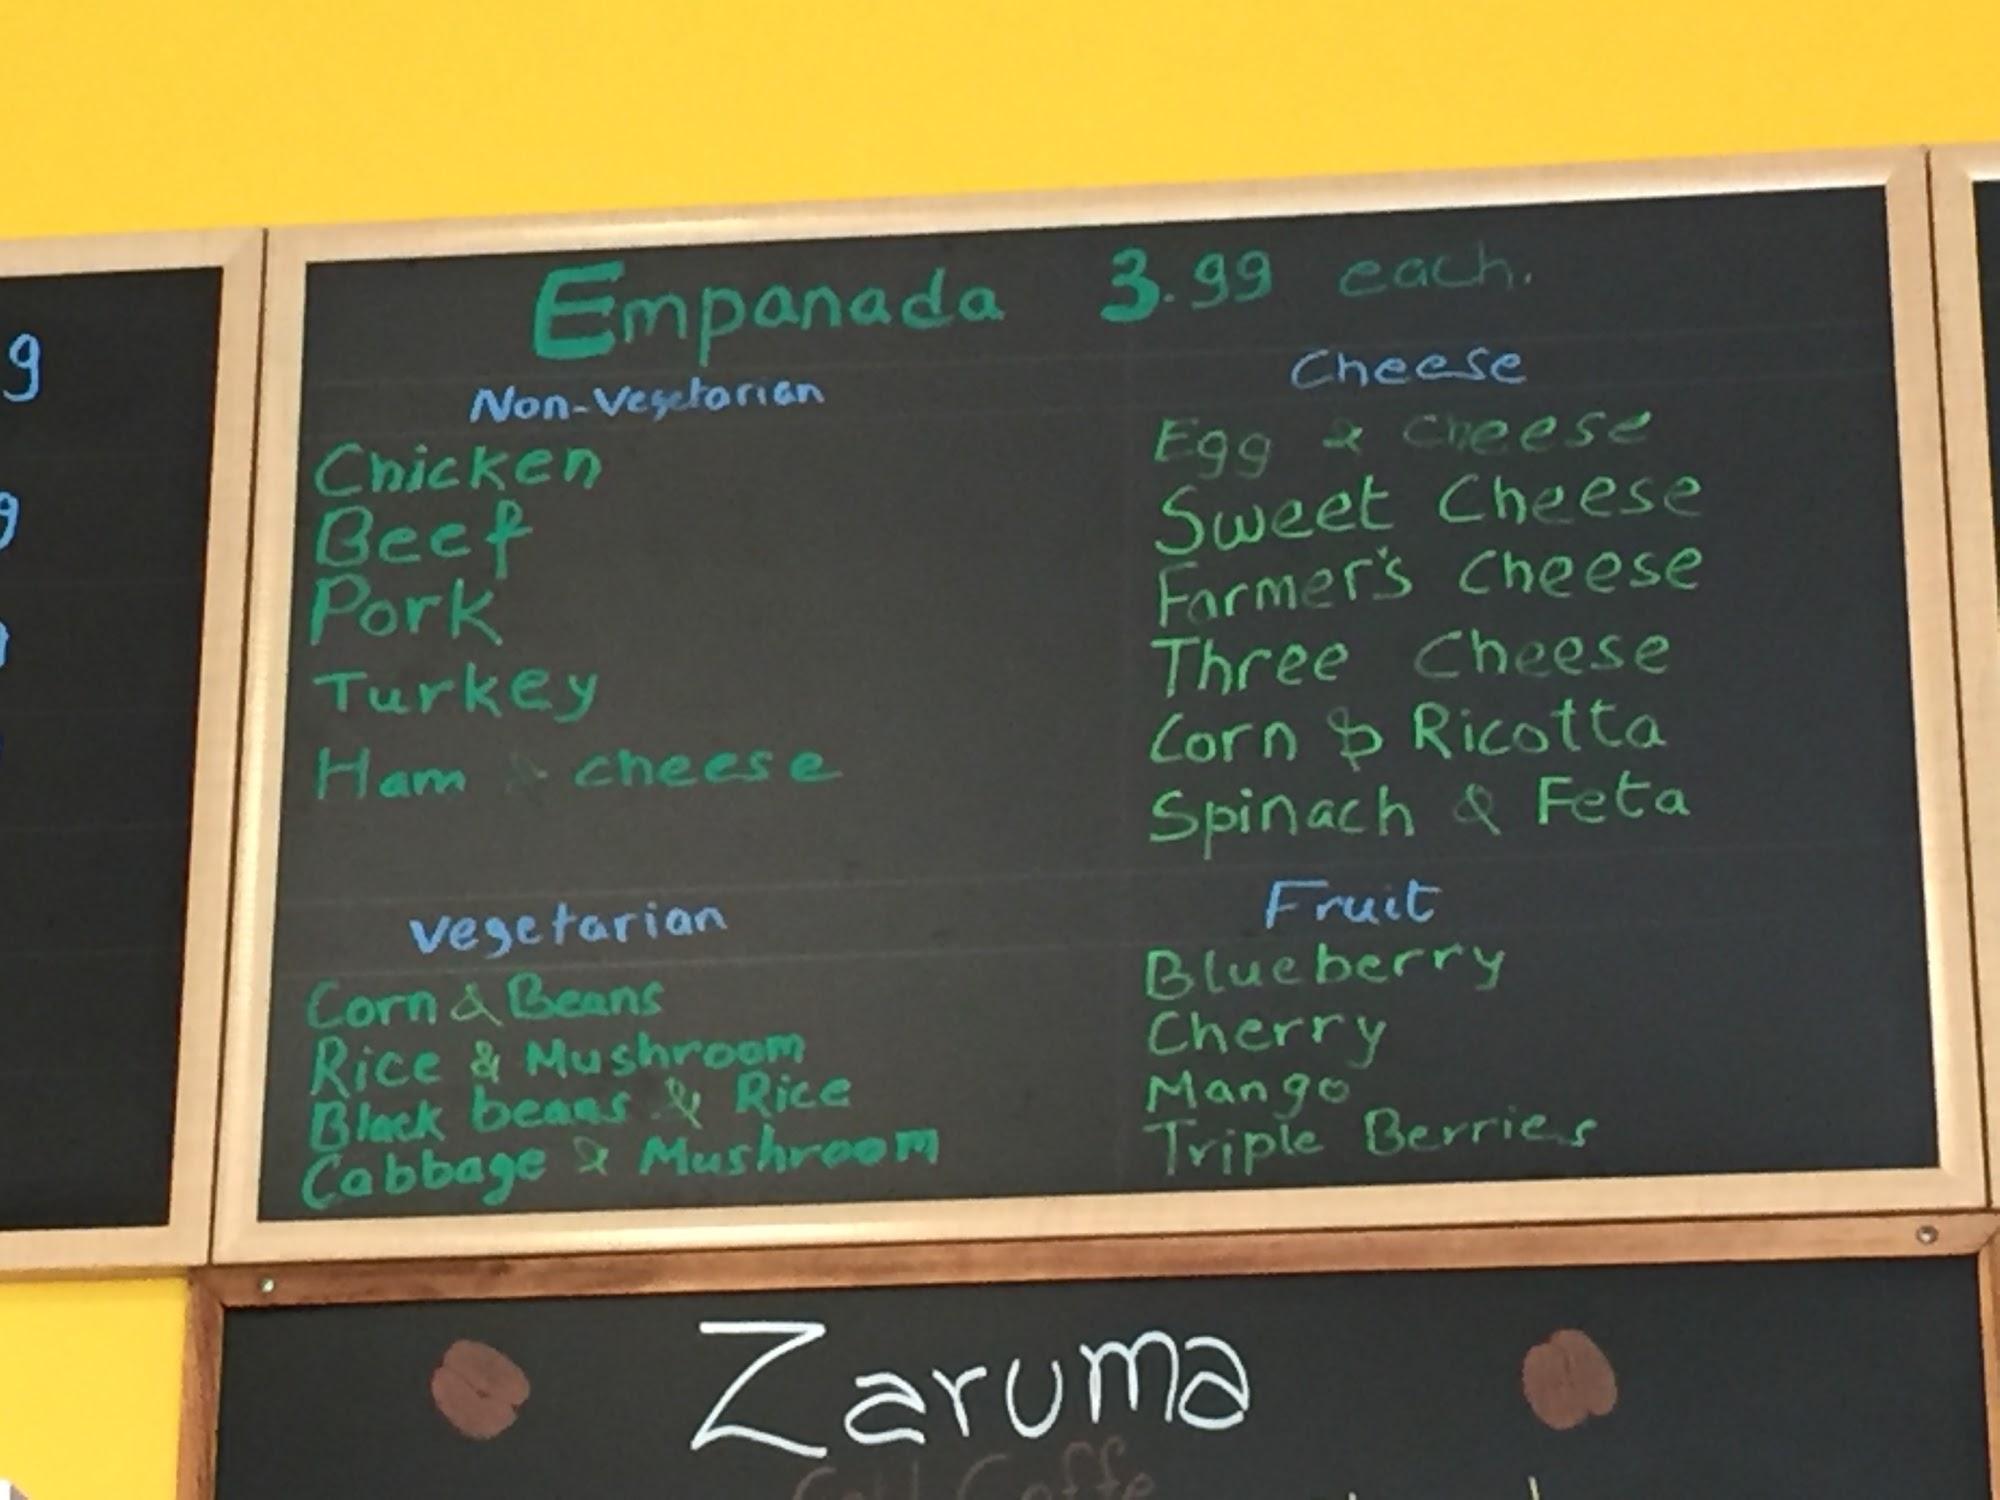 Empanada 3.99 each.
Non-Vegetarian
Chicken
Beef
Pork
Turkey
Ham & cheese
Vegetarian
Corn & Beans
Rice & Mushroom
Black beans & Rice
Cabbage & Mushroom
Cheese
Egg & cheese
Sweet Cheese
Farmer's Cheese
Three Cheese
Corn & Ricotta
Spinach & Feta
Fruit
Blueberry
Cherry
Mango
Triple Berries
Zaruma
Gold Coffe